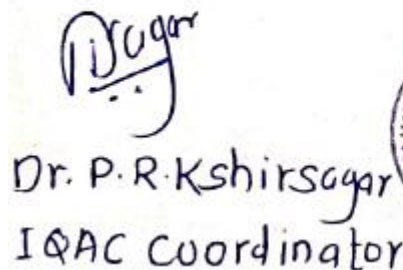 Dr. P. R. Kshirsagar
IQAC Coordinator